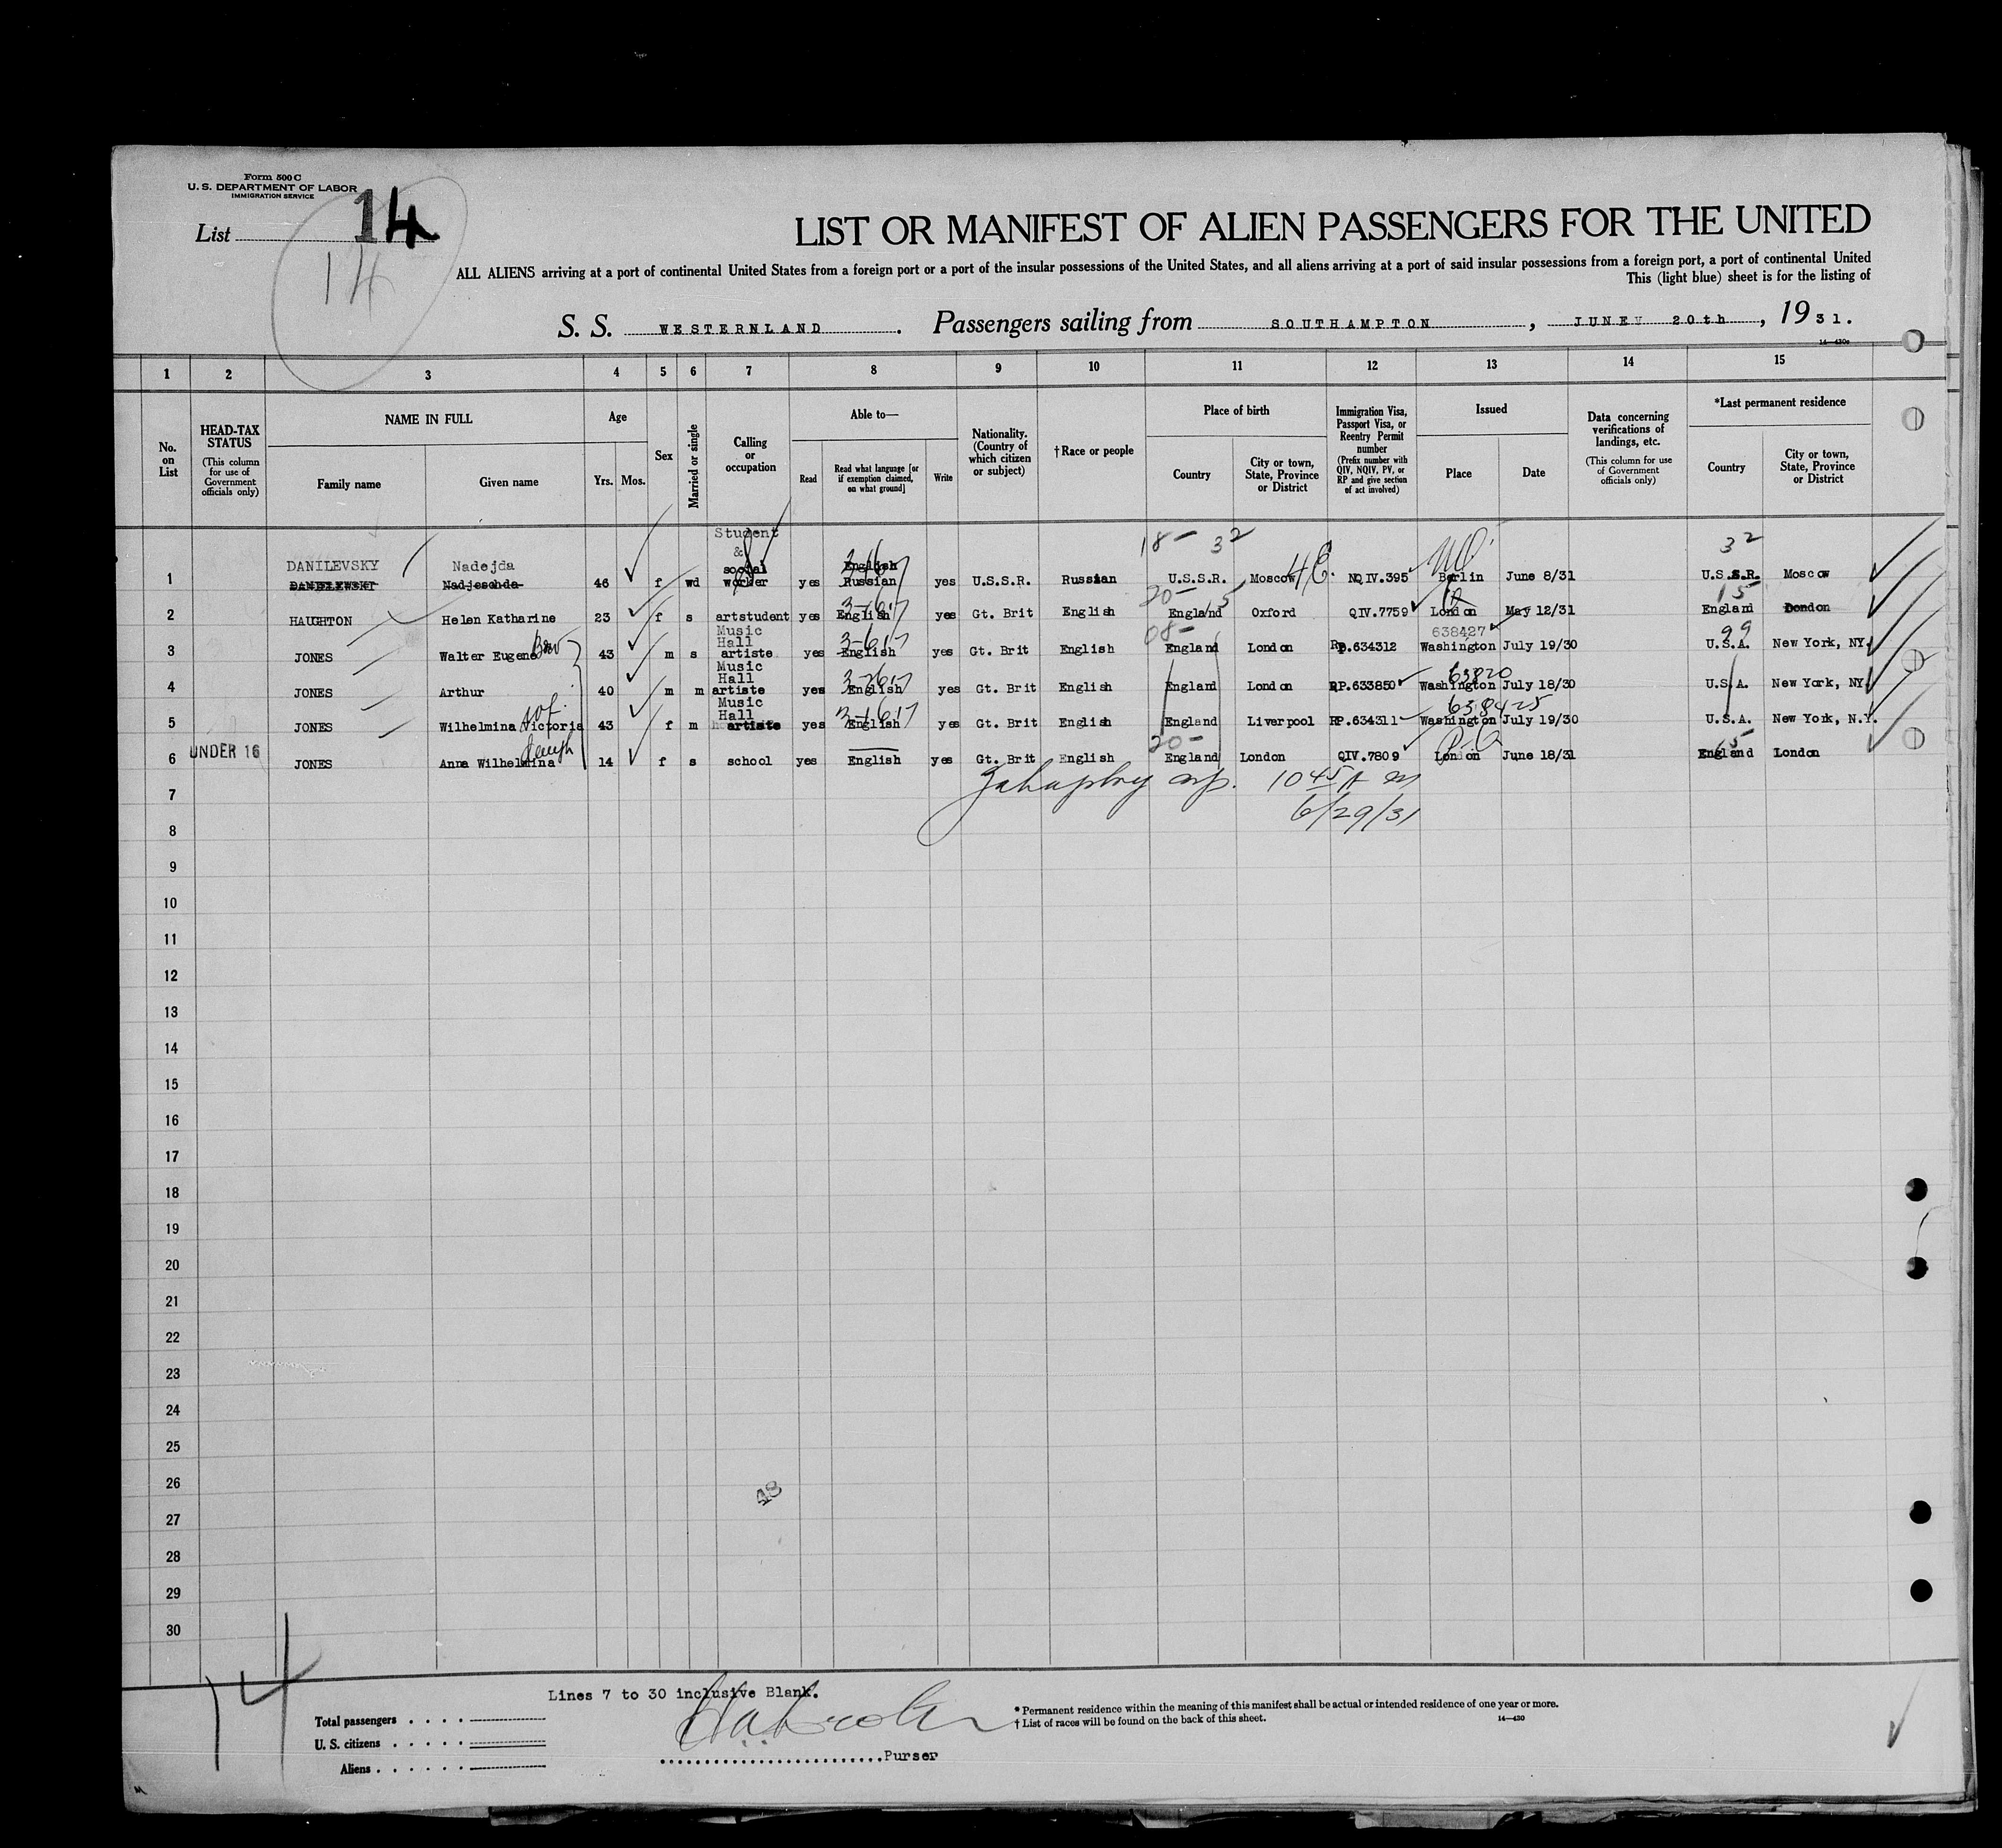 Form 500 C
U. S. DEPARTMENT OF LABOR
IMMIGRATION SERVICE
List 14
14
LIST OR MANIFEST OF ALIEN PASSENGERS FOR THE UNITED
ALL ALIENS arriving at a port of continental United States from a foreign port or a port of the insular possessions of the United States, and all aliens arriving at a port of said insular possessions from a foreign port, a port of continental United
This (light blue) sheet is for the listing of
S. S. WESTERNLAND. Passengers sailing from SOUTHAMPTON, JUNE 20th, 1931.
14—430c
1 2 3 4 5 6 7 8 9 10 11 12 13 14 15
No. on List
HEAD-TAX STATUS (This column for use of Government officials only)
NAME IN FULL
Family name
Given name
Age
Yrs. Mos.
Sex
Married or single
Calling or occupation
Able to—
Read
Read what language [or if exemption claimed, on what ground]
Write
Nationality. (Country of which citizen or subject)
†Race or people
Place of birth
Country
City or town, State, Province or District
Immigration Visa, Passport Visa, or Reentry Permit number (Prefix number with QIV, NQIV, PV, or RP and give section of act involved)
Issued
Place
Date
Data concerning verifications of landings, etc. (This column for use of Government officials only)
*Last permanent residence
Country
City or town, State, Province or District
18- 32 32
1 DANILEVSKY DANIELEWSKY Nadejda Nadjeschda 46 f wd Student & social worker yes English Russian yes U.S.S.R. Russian U.S.S.R. Moscow NQIV.395 Berlin June 8/31 U.S.S.R. Moscow
20- 15 15
2 HAUGHTON Helen Katharine 23 f s artstudent yes English yes Gt. Brit English England Oxford QIV.7759 London May 12/31 England London
08- 638427 99
3 JONES Walter Eugene Bro 43 m s Music Hall artiste yes English yes Gt. Brit English England London RP.634312 Washington July 19/30 U.S.A. New York, NY.
63820
4 JONES Arthur 40 m m Music Hall artiste yes English yes Gt. Brit English England London RP.633850 Washington July 18/30 U.S.A. New York, NY.
638425
5 JONES Wilhelmina Victoria wf. 43 f m Music Hall artiste yes English yes Gt. Brit English England Liverpool RP.634311 Washington July 19/30 U.S.A. New York, N.Y.
20- 15
6 UNDER 16 JONES Anna Wilhelmina 14 f s school yes English yes Gt. Brit English England London QIV.7809 London June 18/31 England London
7 1045 A m
8 6/29/31
9
10
11
12
13
14
15
16
17
18
19
20
21
22
23
24
25
26
48
27
28
29
30
14
Lines 7 to 30 inclusive Blank.
Total passengers
U. S. citizens
Aliens
Purser
* Permanent residence within the meaning of this manifest shall be actual or intended residence of one year or more.
† List of races will be found on the back of this sheet.
14—430